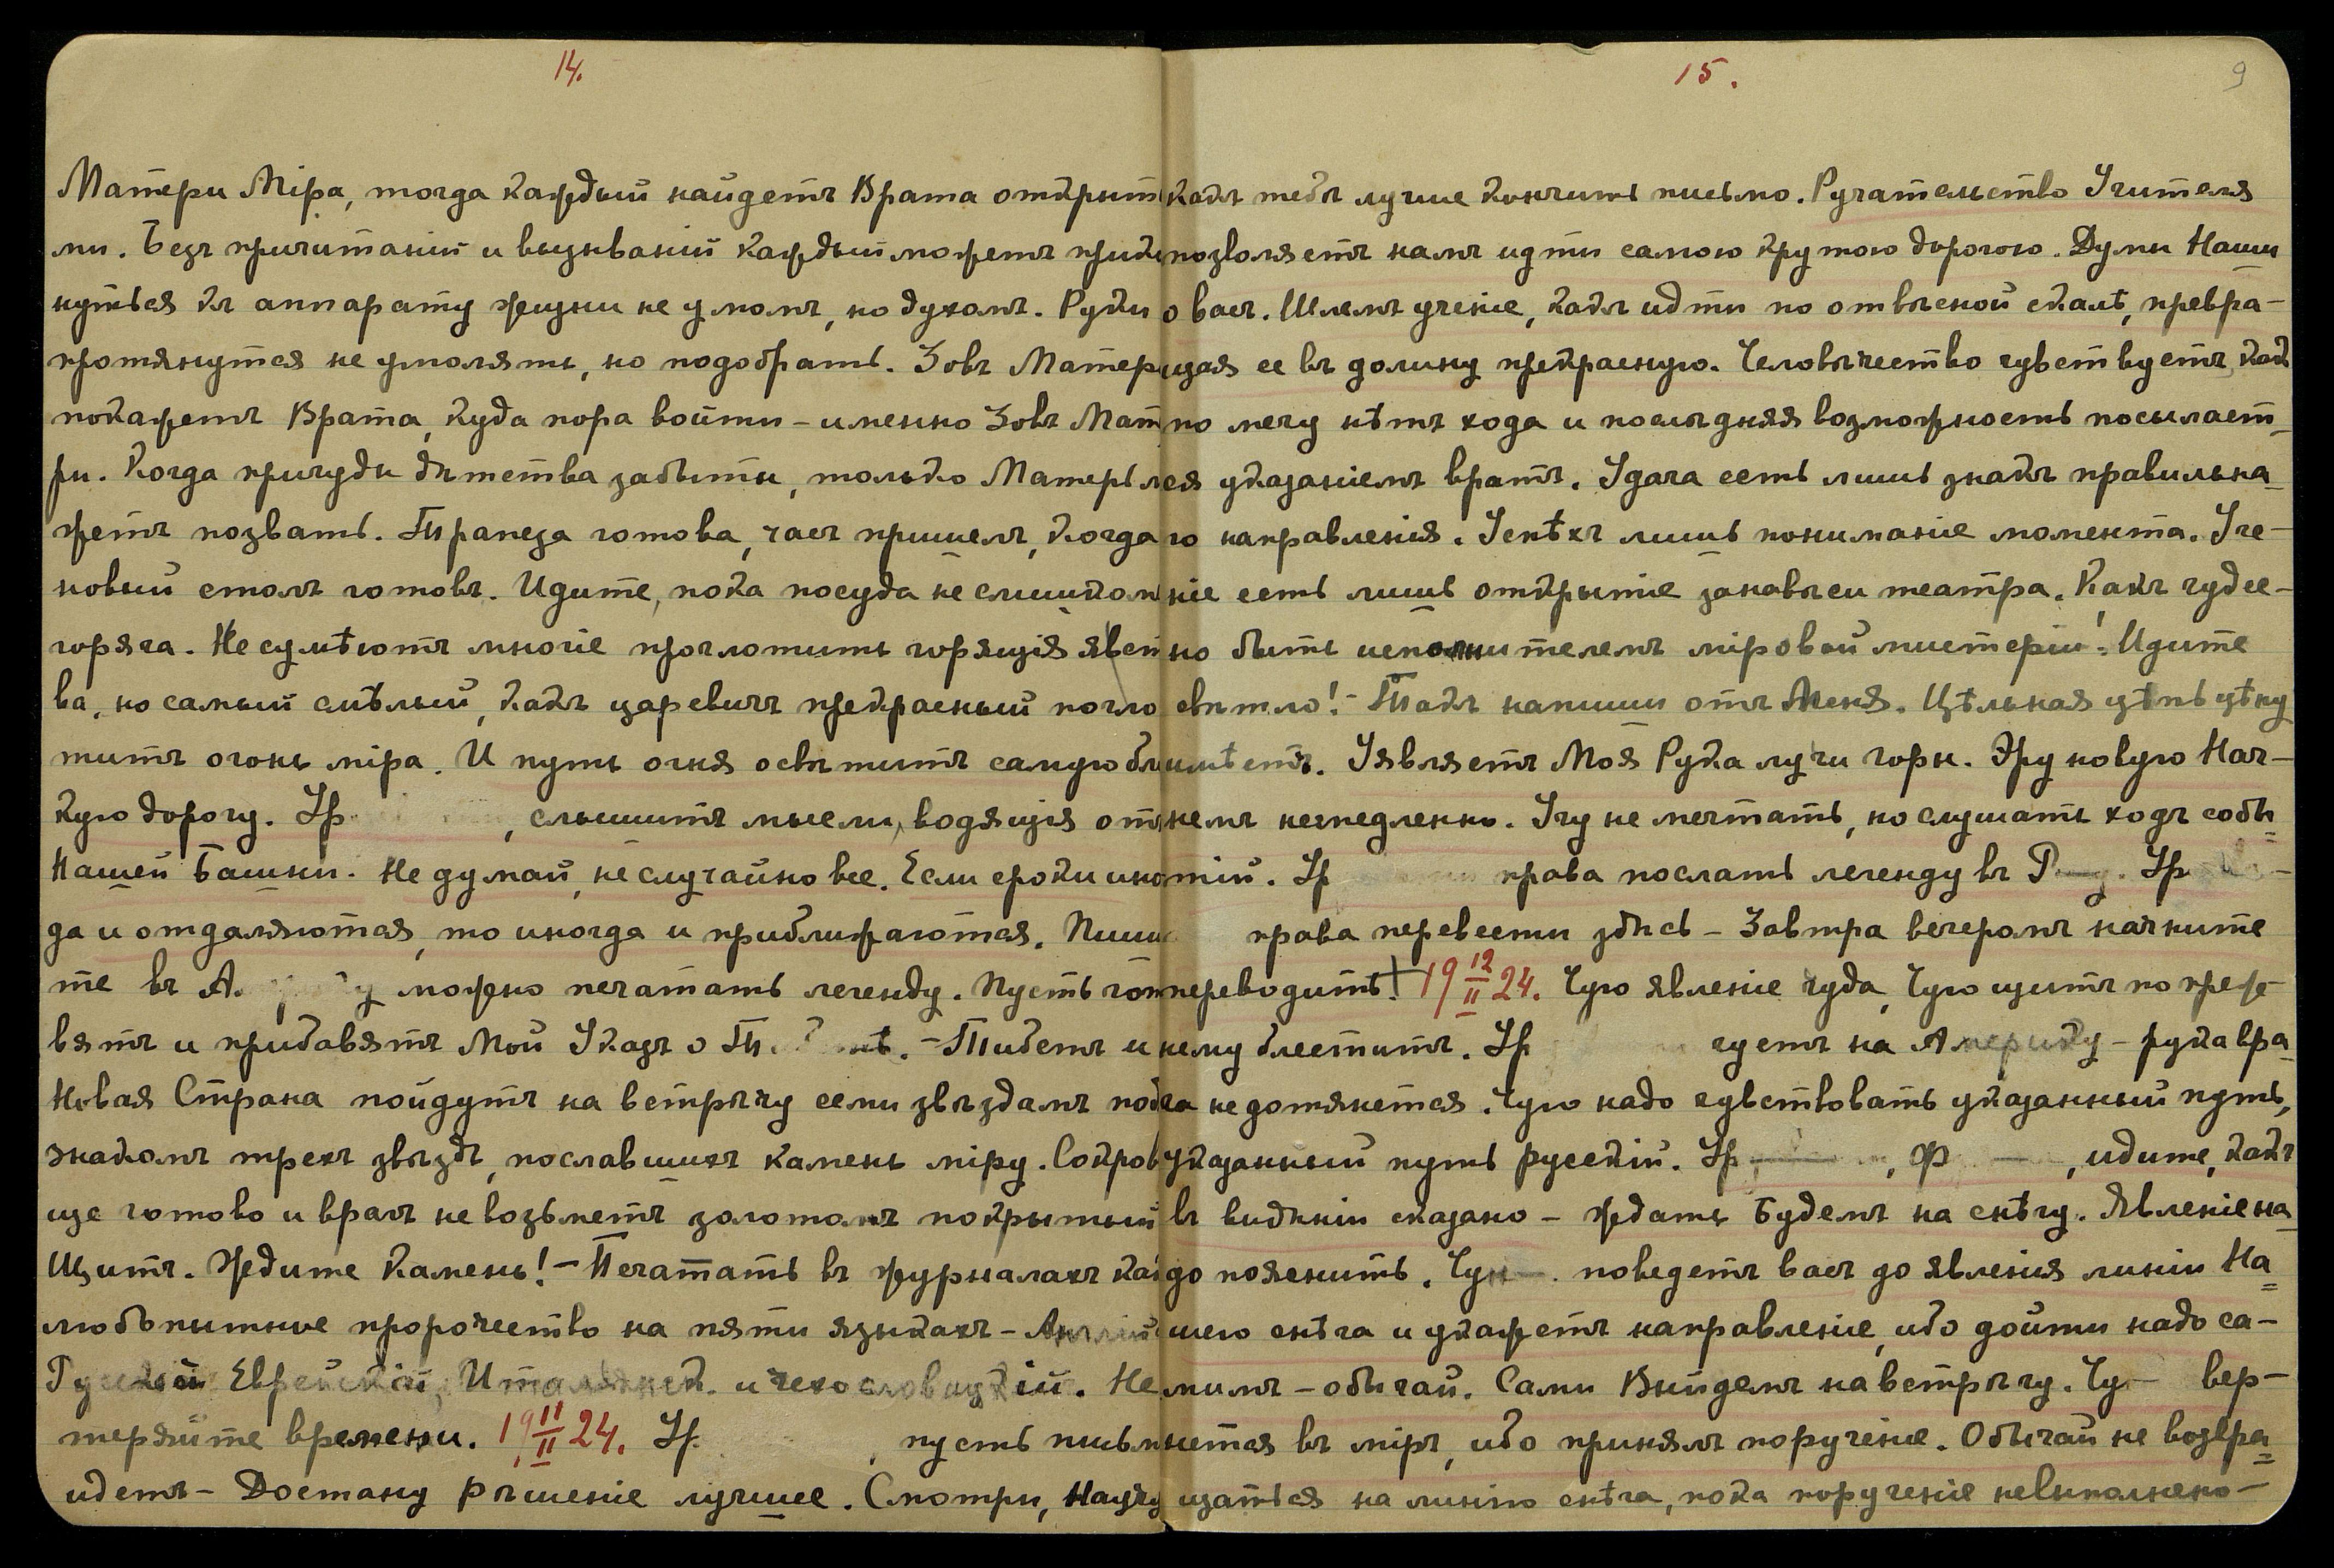 14.
Матери Міра, тогда каждый найдетъ Врата открыт
ми. Безъ причитаній и взываній каждый можетъ прик
нуться къ аппарату жизни не умомъ, но духомъ. Руки
протянутся не умолять, но подобрать. Зовъ Матери
покажетъ Врата, куда пора войти – именно Зовъ Мат
ри. Когда причуды дѣтства забыты, только Матерь м
жетъ позвать. Трапеза готова, часъ пришелъ, когда
новый столъ готовъ. Идите, пока посуда не слишком
горяча. Не сумѣютъ многіе проглотить горящія явст
ва, но самый смѣлый, какъ царевичъ прекрасный погло
титъ огонь міра. И путь огня освѣтитъ самую бли
кую дорогу. Ур. , слышитъ мысли, водящія от
Нашей Башни. Не думай, не случайно все. Если сроки иног
да и отдаляются, то иногда и приближаются. Пиши
те въ А у можно печатать легенду. Пусть гото
вятъ и прибавятъ Мой Указъ о Ти нѣ. – Тибетъ и
Новая Страна пойдутъ на встрѣчу семи звѣздамъ под
знакомъ трехъ звѣздъ, пославшихъ Камень міру. Сокров
ще готово и врагъ не возьметъ золотомъ покрытый
Щитъ. Ждите Камень! – Печатать въ журналахъ как
любопытное пророчество на пяти языкахъ – Англій
Русскій Еврейскій, Итальянск. и чехословацкій. Не
теряйте времени. 19 11/II 24. Ур. , пусть письм
идетъ – Достану рѣшеніе лучшее. Смотри, Научу
15.
9
какъ тебѣ лучше кончить письмо. Ручательство Учителя
позволяетъ намъ идти самою крутою дорогою. Думы Наши
о васъ. Шлемъ ученіе, какъ идти по отвѣсной скалѣ, превра-
щая ее въ долину прекрасную. Человѣчество чувствуетъ, какъ
по мечу нѣтъ хода и послѣдняя возможность посылает-
ся указаніемъ вратъ. Удача есть лишь знакъ правильна-
го направленія. Успѣхъ лишь пониманіе момента. Уче-
ніе есть лишь открытіе занавѣси театра. Какъ чудес-
но быть исполнителемъ міровой мистеріи! Идите
свѣтло! – Такъ напиши отъ Меня. Цѣльная цѣпь цѣну
имѣетъ. Уявляетъ Моя Рука лучи горы. Эру новую Нач-
немъ немедленно. Учу не мечтать, но слушать ходъ собы-
тій. Ур права послать легенду въ Р у. Ур
права перевести здѣсь – Завтра вечеромъ начните
переводить. 19 12/II 24. Чую явленіе чуда, Чую щитъ по преж-
нему блеститъ. Ур чуетъ на Америку – рука вра-
га не дотянется. Чую надо чувствовать указанный путь,
указанный путь русскій. Ур , Ф , идите, какъ
въ видѣніи сказано – ждать Будемъ на снѣгу. Явленіе на-
до пояснить. Чу поведетъ васъ до явленія линіи На-
шего снѣга и укажетъ направленіе, ибо дойти надо са-
мимъ – обычай. Сами Выйдемъ навстрѣчу. Чу вер-
нется въ міръ, ибо принялъ порученіе. Обычай не возвра-
щаться на линію снѣга, пока порученіе невыполнено –